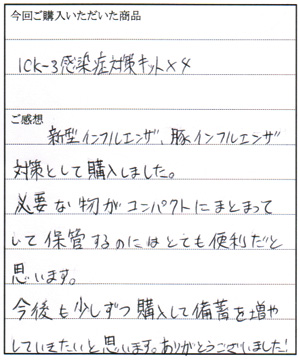 今回ご購入いただいた商品
ICK-3感染症対策キット×4
ご感想
新型インフルエンザ、豚インフルエンザ
対策として購入しました。
必要な物がコンパクトにまとまって
いて保管するのにはとても便利だと
思います。
今後も少しずつ購入して備蓄を増や
していきたいと思います。ありがとうございました!